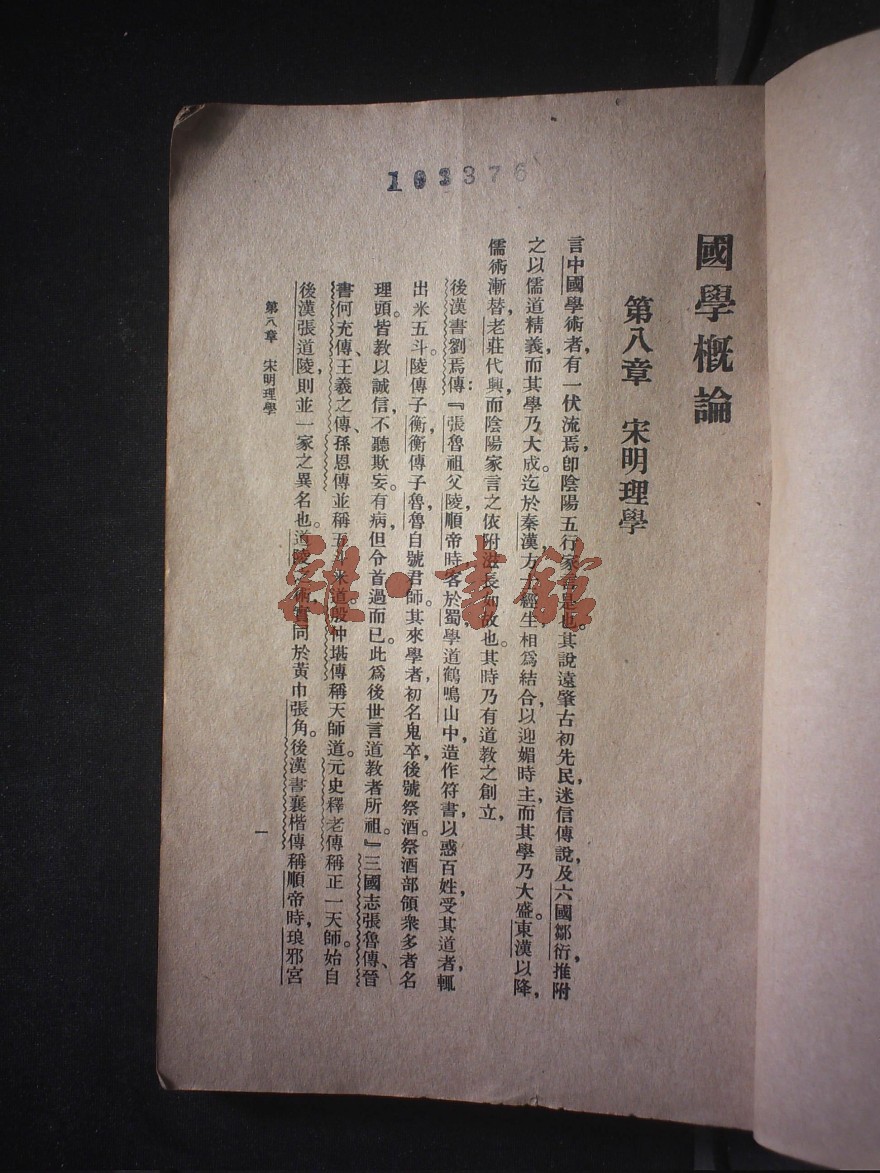 103376
國學概論
第八章　宋明理學
言中國學術者，有一伏流焉，卽陰陽五行家言是也。其說遠肇古初先民迷信傳說，及六國鄒衍推附
之以儒道精義，而其學乃大成。迄於秦漢，方士經生，相爲結合，以迎媚時主，而其學乃大盛。東漢以降，
儒術漸替，老莊代興，而陰陽家言之依附滋長如故也。其時乃有道教之創立，
後漢書劉焉傳：『張魯祖父陵，順帝時客於蜀，學道鶴鳴山中，造作符書，以惑百姓，受其道者，輒
出米五斗。陵傳子衡，衡傳子魯，魯自號君師。其來學者，初名鬼卒，後號祭酒。祭酒部領衆多者名
理頭。皆教以誠信，不聽欺妄。有病，但令首過而已。此爲後世言道教者所祖。』三國志張魯傳、晉
書何充傳、王羲之傳、孫恩傳並稱五斗米道。殷仲堪傳稱天師道。元史釋老傳稱正一天師。始自
後漢張道陵，則並一家之異名也。道陵之術，實同於黃巾張角。後漢書襄楷傳稱順帝時，琅邪宮
第八章　宋明理學
一
雒·書館